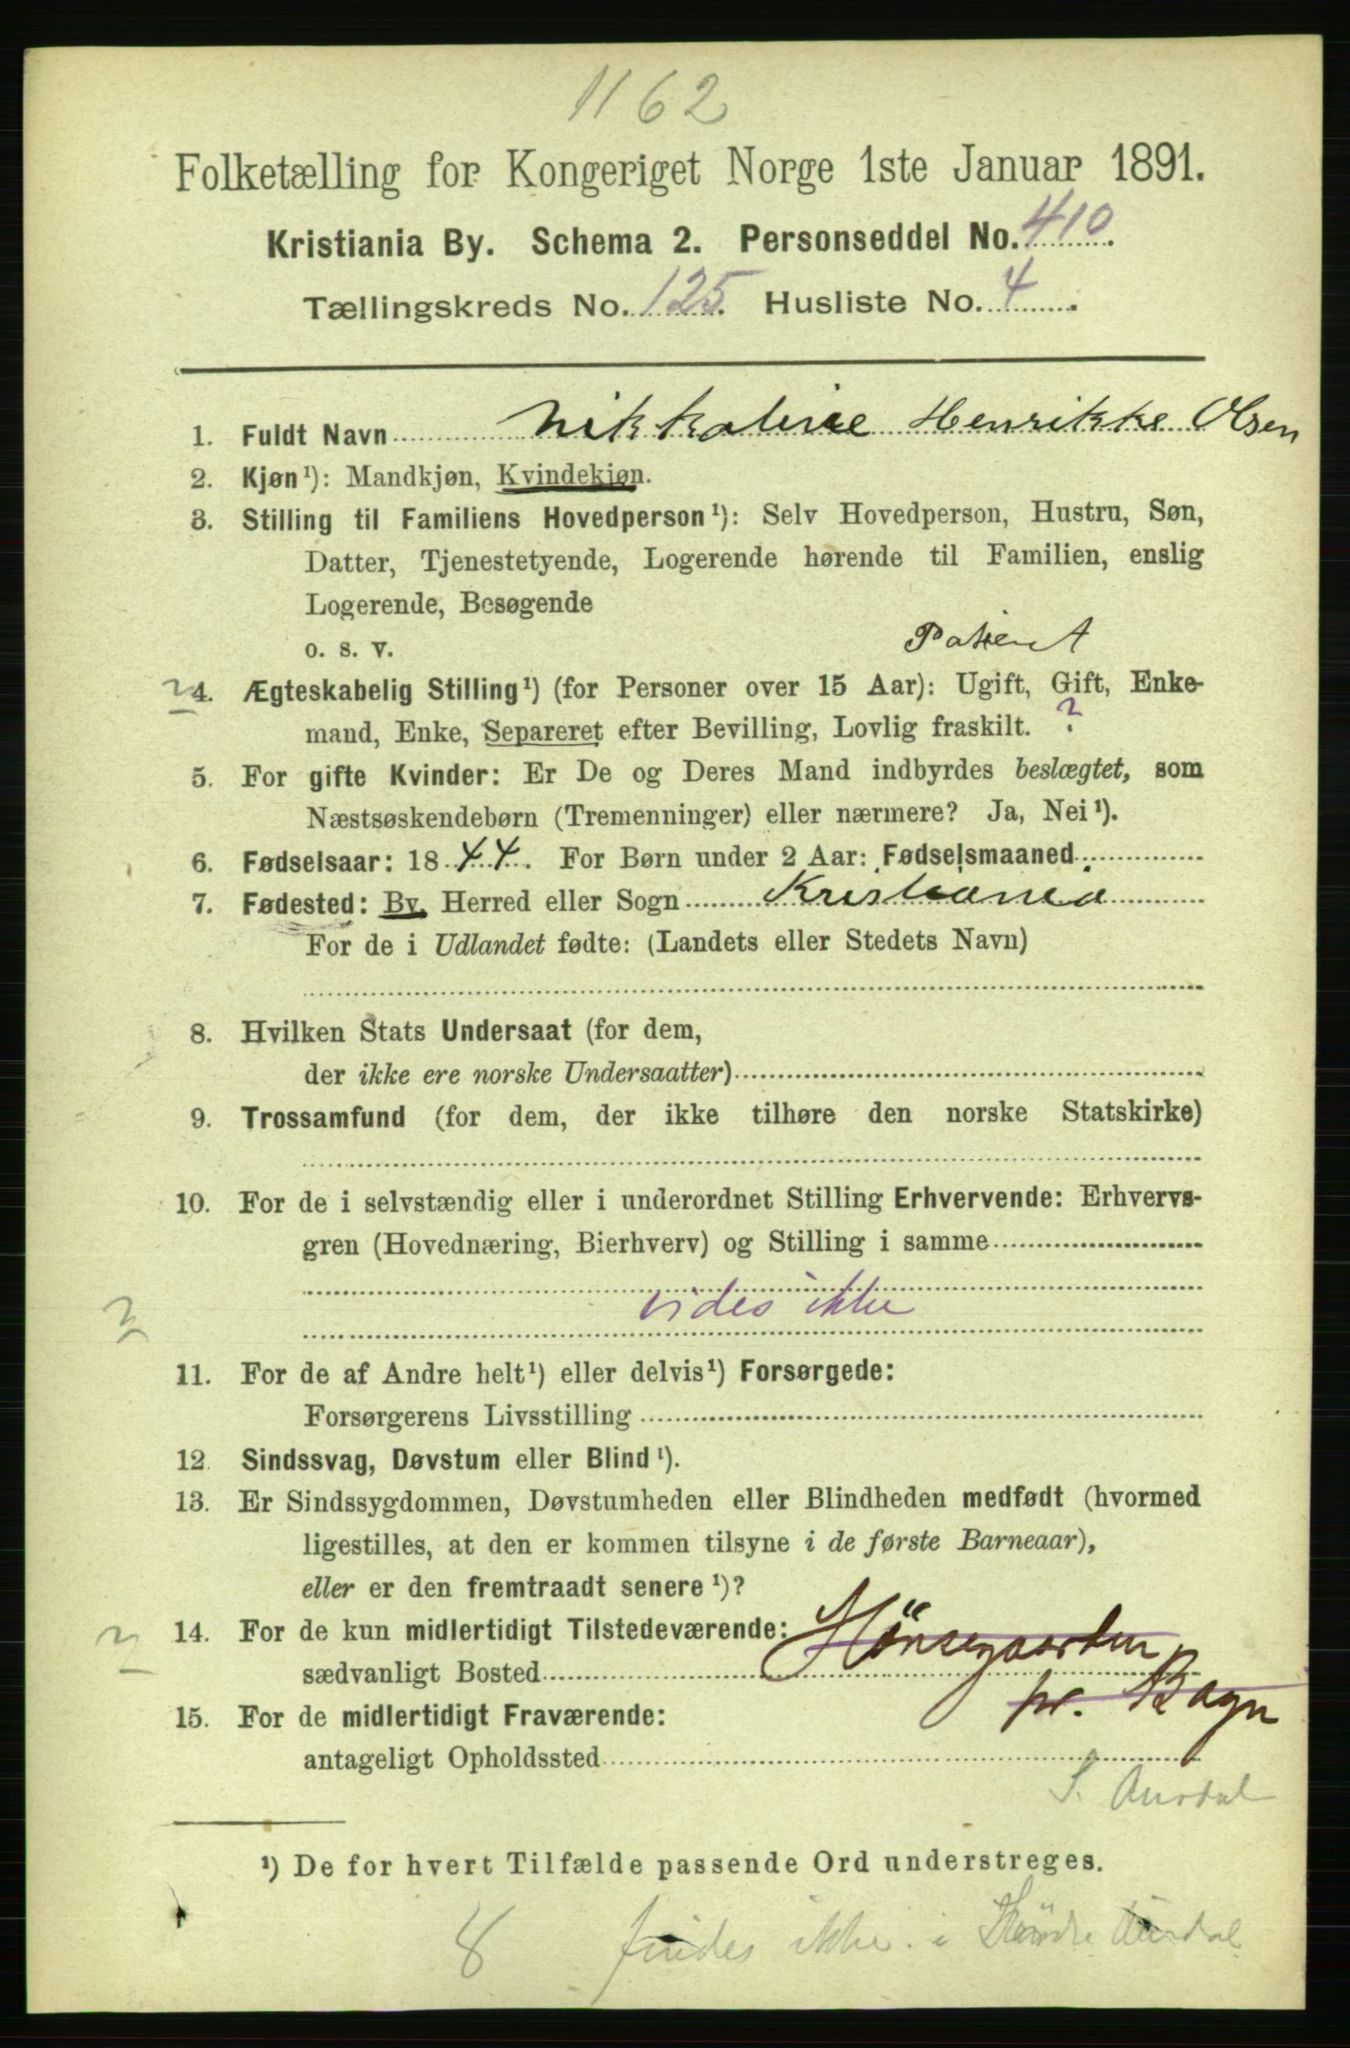 1162
Folketælling for Kongeriget Norge 1ste Januar 1891.
Kristiania By. Schema 2. Personseddel No. 410.
Tællingskreds No. 125. Husliste No. 4.
1. Fuldt Navn Nikkoline Henrikke Olsen
2. Kjøn¹): Mandkjøn, Kvindekjøn.
3. Stilling til Familiens Hovedperson¹): Selv Hovedperson, Hustru, Søn,
Datter, Tjenestetyende, Logerende hørende til Familien, enslig
Logerende, Besøgende
o. s. v. Patient
4. Ægteskabelig Stilling¹) (for Personer over 15 Aar): Ugift, Gift, Enke-
mand, Enke, Separeret efter Bevilling, Lovlig fraskilt. ?
5. For gifte Kvinder: Er De og Deres Mand indbyrdes beslægtet, som
Næstsøskendebørn (Tremenninger) eller nærmere? Ja, Nei¹).
6. Fødselsaar: 1844. For Børn under 2 Aar: Fødselsmaaned
7. Fødested: By, Herred eller Sogn Kristiania
For de i Udlandet fødte: (Landets eller Stedets Navn)
8. Hvilken Stats Undersaat (for dem,
der ikke ere norske Undersaatter)
9. Trossamfund (for dem, der ikke tilhøre den norske Statskirke)
10. For de i selvstændig eller i underordnet Stilling Erhvervende: Erhvervs-
gren (Hovednæring, Bierhverv) og Stilling i samme
vides ikke
11. For de af Andre helt¹) eller delvis¹) Forsørgede:
Forsørgerens Livsstilling
12. Sindssvag, Døvstum eller Blind¹).
13. Er Sindssygdommen, Døvstumheden eller Blindheden medfødt (hvormed
ligestilles, at den er kommen tilsyne i de første Barneaar),
eller er den fremtraadt senere¹)?
14. For de kun midlertidigt Tilstedeværende: Hönsegaarden
sædvanligt Bosted pr. Bagn
15. For de midlertidigt Fraværende:
antageligt Opholdssted
S. Aurdal
¹) De for hvert Tilfælde passende Ord understreges.
8 findes ikke i Söndre Aurdal